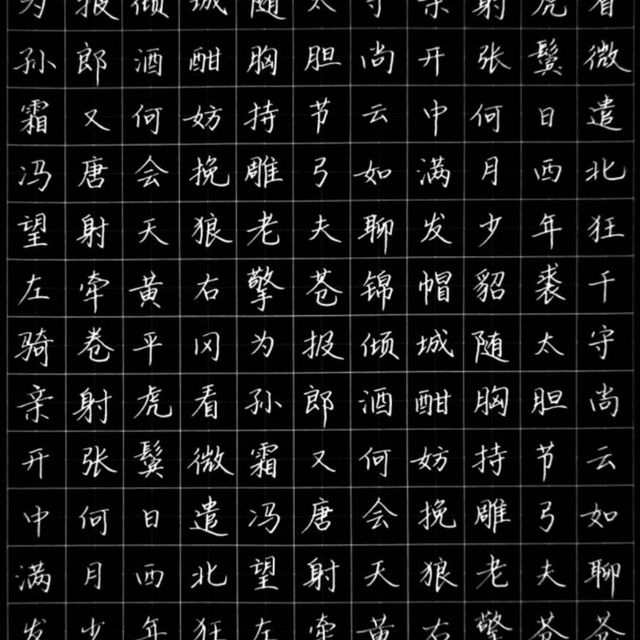 为报倾城随太守亲射虎看
孙郎酒酣胸胆尚开张鬓微
霜又何妨持节云中何日遣
冯唐会挽雕弓如满月西北
望射天狼老夫聊发少年狂
左牵黄右擎苍锦帽貂裘千
骑卷平冈为报倾城随太守
亲射虎看孙郎酒酣胸胆尚
开张鬓微霜又何妨持节云
中何日遣冯唐会挽雕弓如
满月西北望射天狼老夫聊
发少年狂左牵黄右擎苍